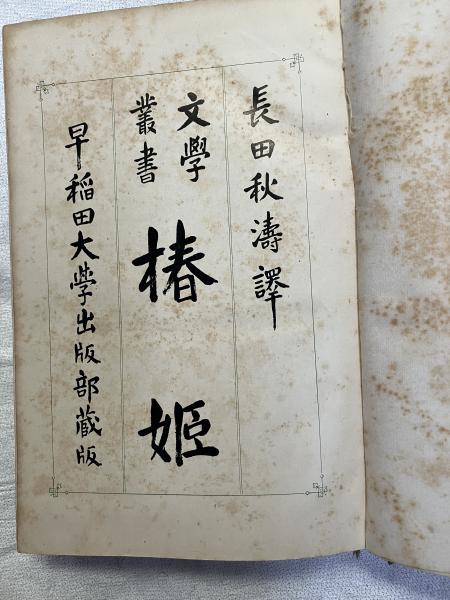 長田秋濤譯
文學
叢書
椿姬
早稲田大学出版部蔵版